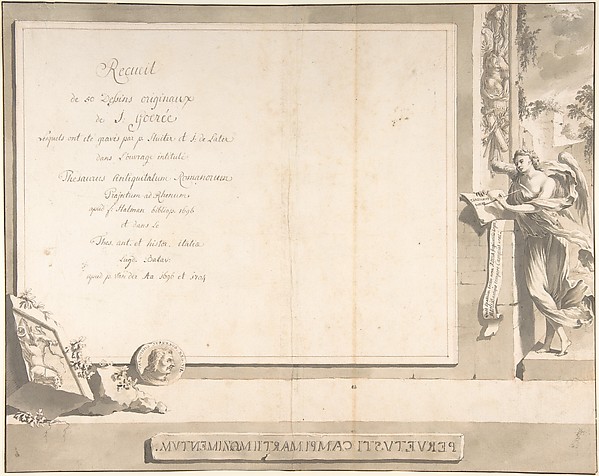 Recueil
de 50 Dessins originaux
de J. Goerée
Lesquels ont eté gravés par p. Sluiter et J. de Later
dans L'ouvrage intitulé
Thesaurus Antiquitatum Romanorum
Trajectum ad Rhenum
apud f. Halman bibliop. 1696
et dans le
Thes. ant. et histor. italia
Lugd. Batav.
apud p. Van der Aa 1696 et 1704
PERVETUSTI CAMPI MARTII MONIMENTUM.